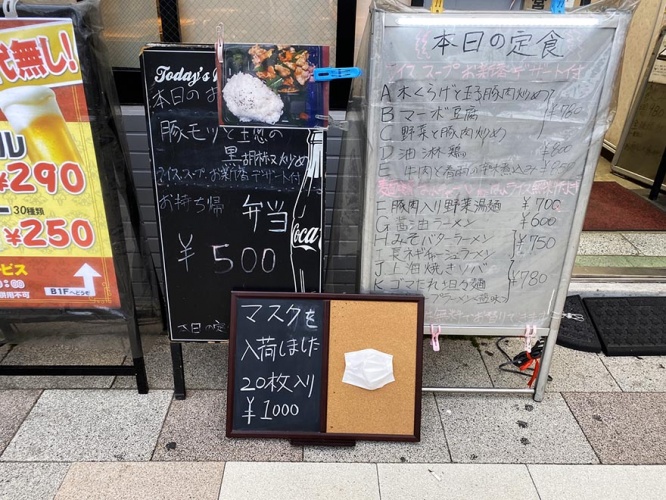 代無し!
ル
¥290
30種類
¥250
ービス
B1Fへどうぞ
Today's
本日のお
豚モツと玉葱の
黒胡椒炒め
ライス、スープ、お漬物、デザート付
お持ち帰
弁当
¥500
Coca
本日の定
マスクを
入荷しました
20枚入り
¥1000
本日の定食
ライス スープ お漬物 デザート付
A 木くらげと玉子豚肉炒め
B マーボ豆腐
¥780
C 野菜と豚肉炒め
D 油淋鶏
¥800
E 牛肉と
F 豚肉入り野菜湯麺 ¥700
G 醤油ラーメン ¥600
H みそバターラーメン
¥750
I 長ネギチャーシュラーメン
J 上海焼きソバ
¥780
K ゴマだれ坦々麺